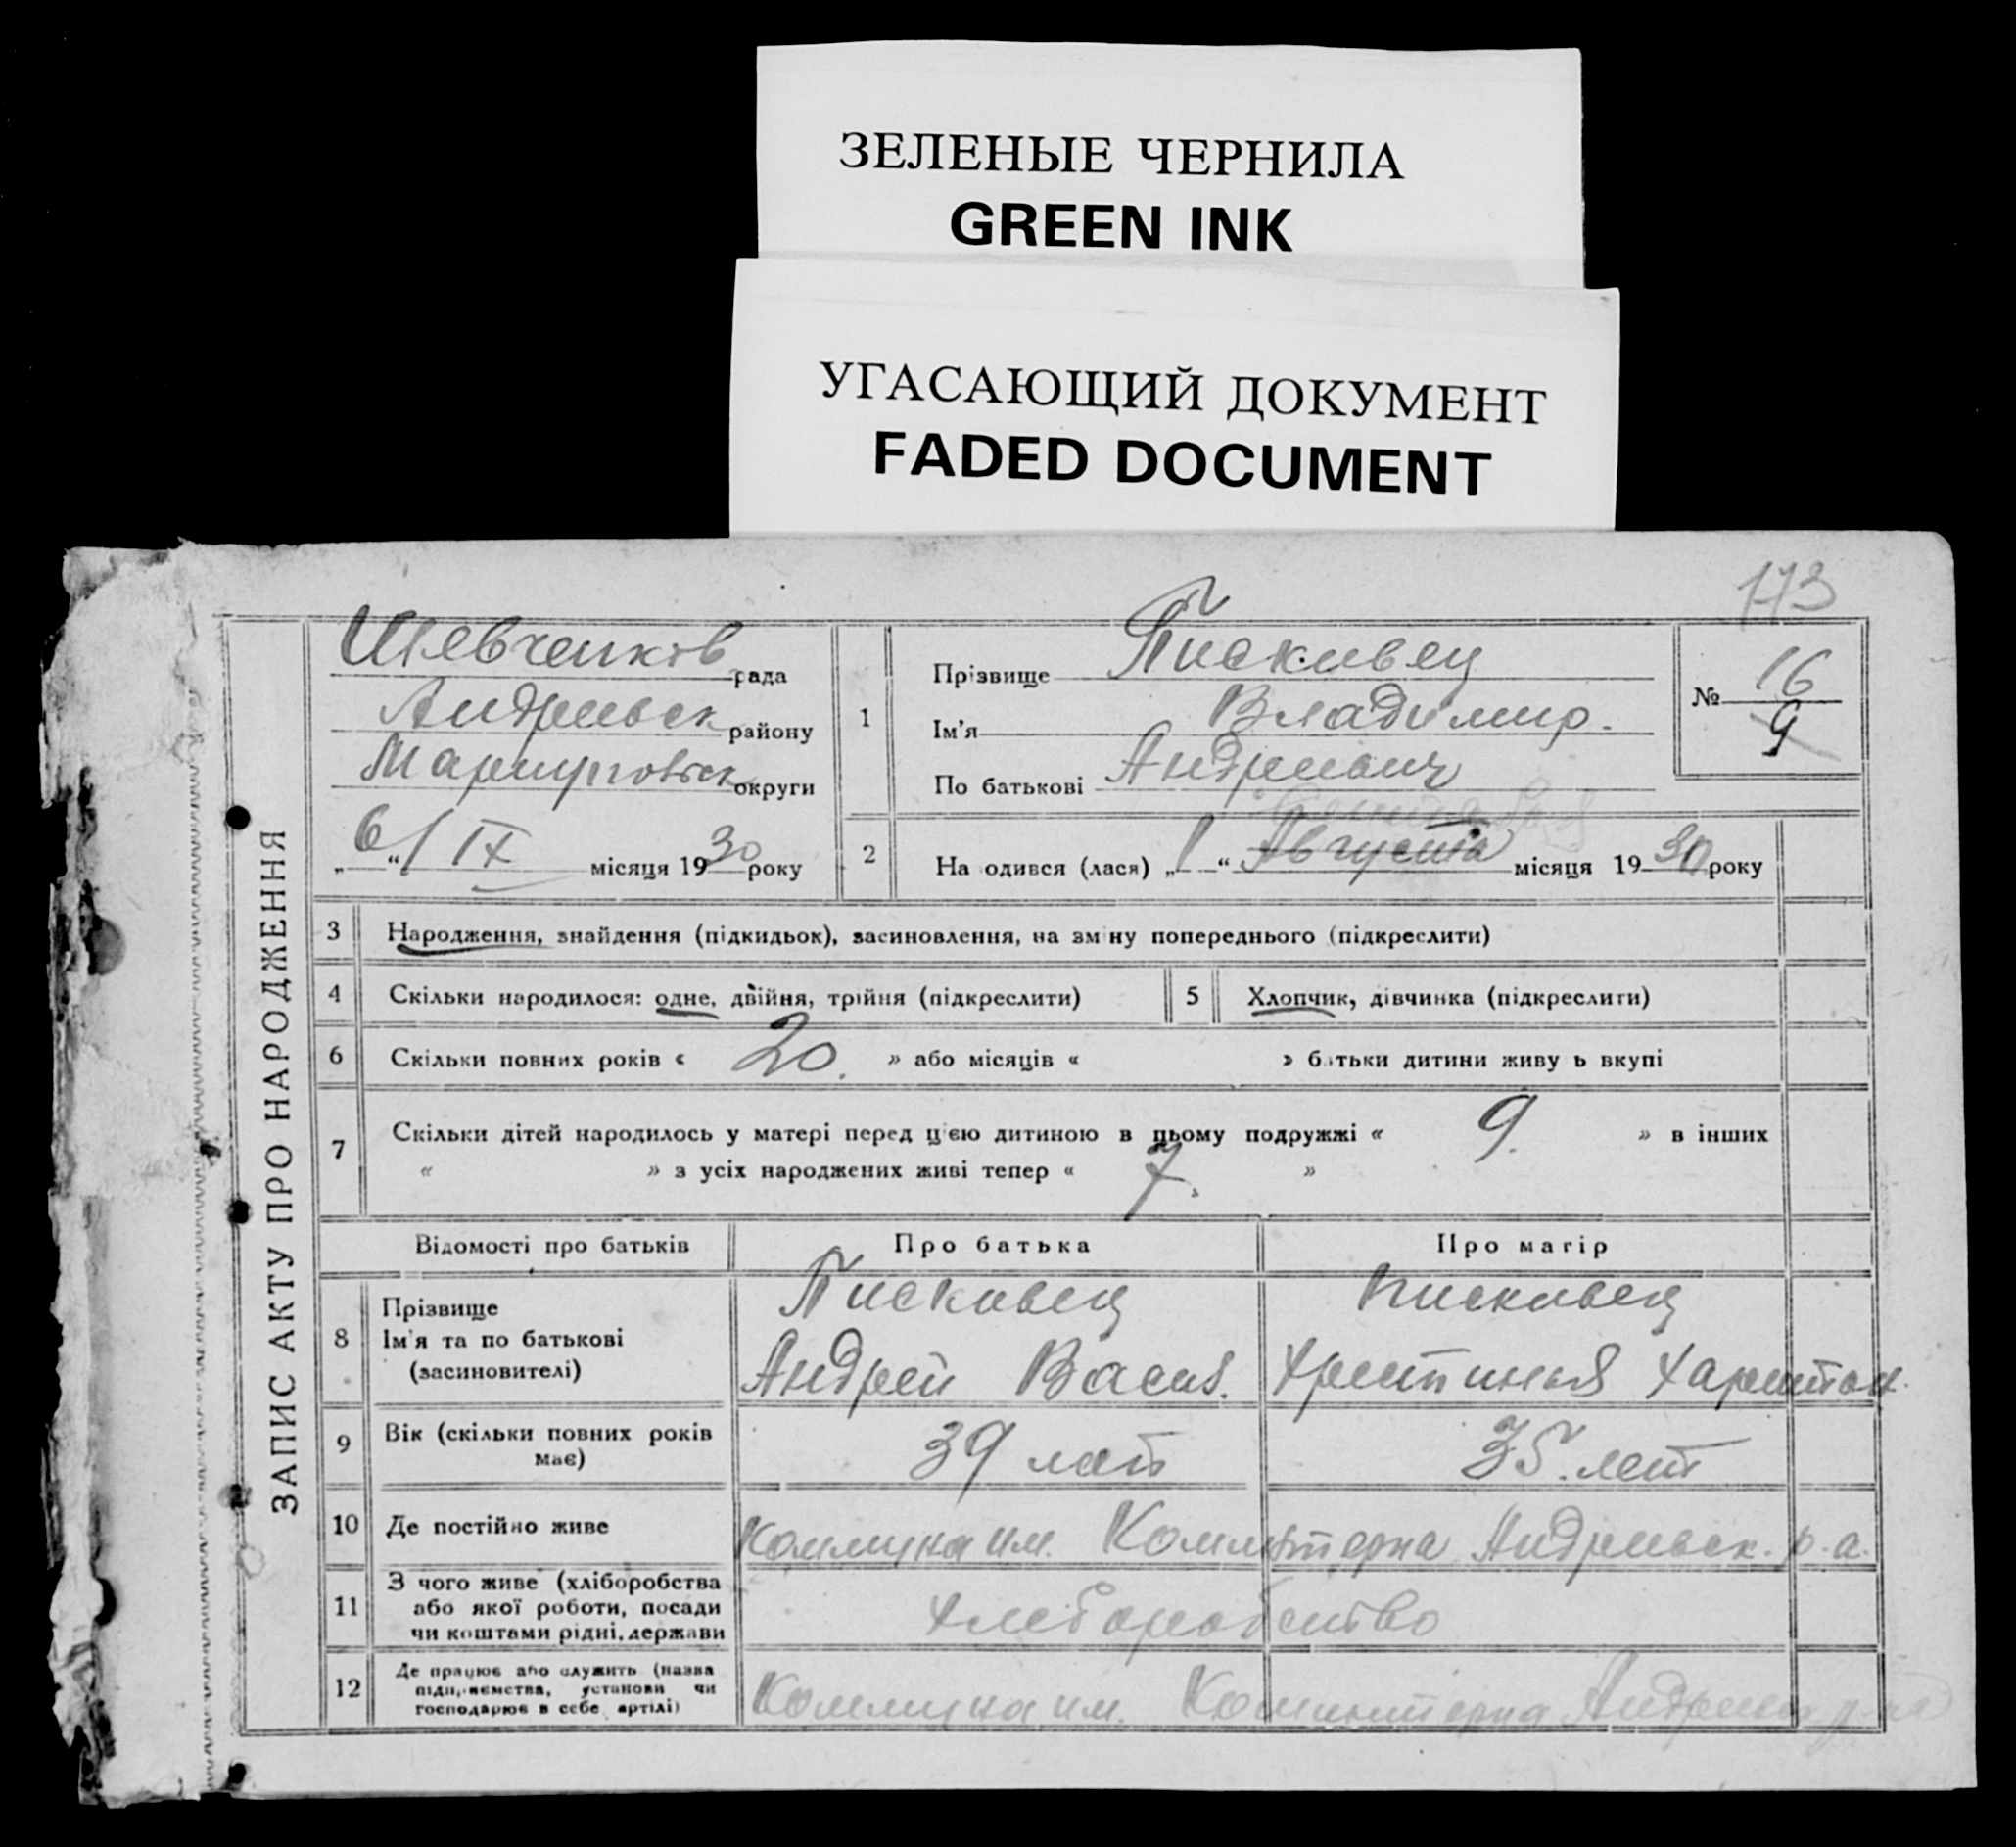 ЗЕЛЕНЫЕ ЧЕРНИЛА
GREEN INK
УГАСАЮЩИЙ ДОКУМЕНТ
FADED DOCUMENT
173
ЗАПИС АКТУ ПРО НАРОДЖЕННЯ
Шевченков рада
Андреевск району
Мариупольск округи
„6“/ IX місяця 1930 року
1
Прізвище Пискивец
Ім'я Владимир.
По батькові Андреевич
№ 16
9
2
На одився (лася) „1“ Августа місяця 1930 року
3 Народження, знайдення (підкидьок), засиновлення, на зм ну попереднього (підкреслити)
4 Скільки народилося: одне, двійня, трійня (підкреслити)
5 Хлопчик, дівчинка (підкреслити)
6 Скільки повних років « 20. » або місяців « » батьки дитини живу ь вкупі
7 Скільки дітей народилось у матері перед цією дитиною в цьому подружжі « 9. » в інших
« » з усіх народжених живі тепер « 7. »
Відомості про батьків Про батька Про матір
8 Прізвище Пискивец Пискивец
Ім'я та по батькові Андрей Васил. Хрестинья Харитон.
(засиновителі)
9 Вік (скільки повних років має) 39 лет 35. лет
10 Де постійно живе Коммуна им. Коминтерна Андреевск. р. а.
11 З чого живе (хліборобства
або якої роботи, посади
чи коштами рідні, держави
Хлеборобство
12 Де працює або служить (назва
підприємства, установи чи
господарює в себе артілі)
Коммуна им. Коминтерна